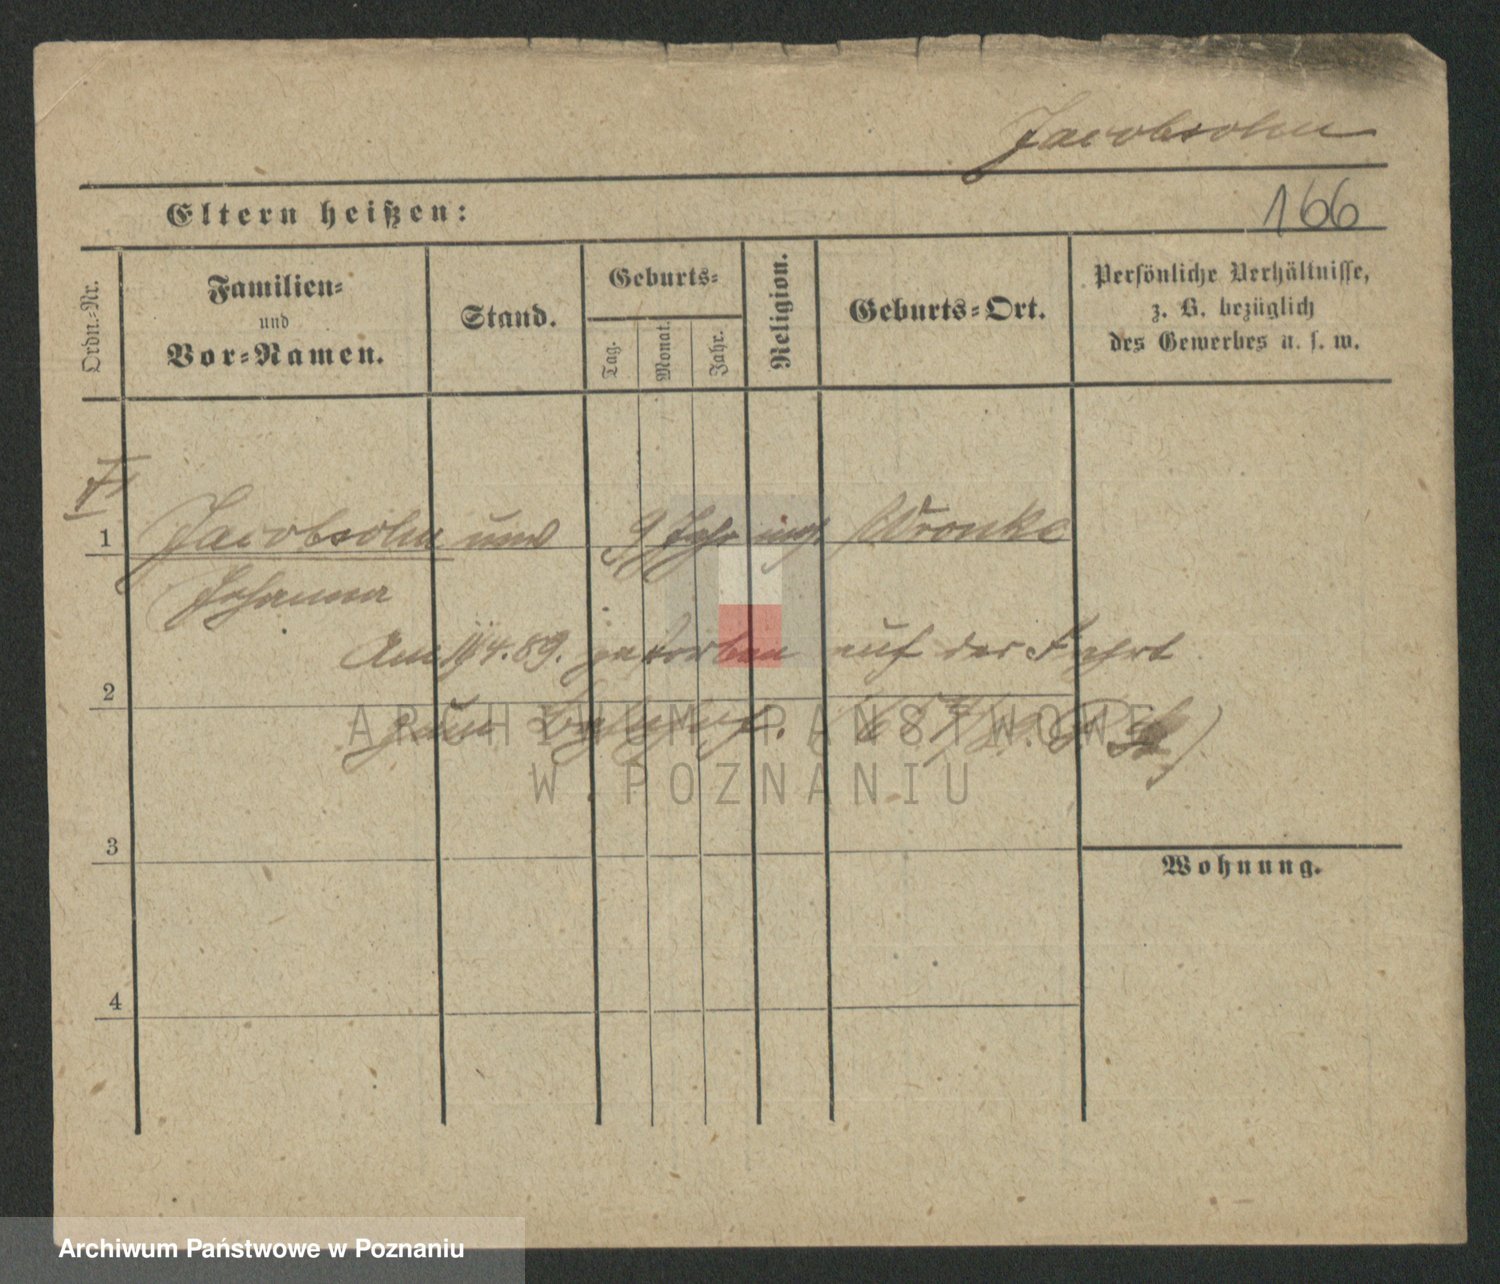 Jacobsohn
Eltern heißen:
166
Ordn.-Nr.
Familien-
und
Vor-Namen.
Stand.
Geburts-
Tag.
Monat.
Jahr.
Religion.
Geburts-Ort.
Persönliche Verhältnisse,
z. B. bezüglich
des Gewerbes u. s. w.
1 Jacobsohn unv 9 Jahr Wronke
Johanna
Am 4.89. gestorben auf der Fahrt
2
zum Bahnhof.
ARCHIWUM PAŃSTWOWE
W POZNANIU
3
Wohnung.
4
Archiwum Państwowe w Poznaniu